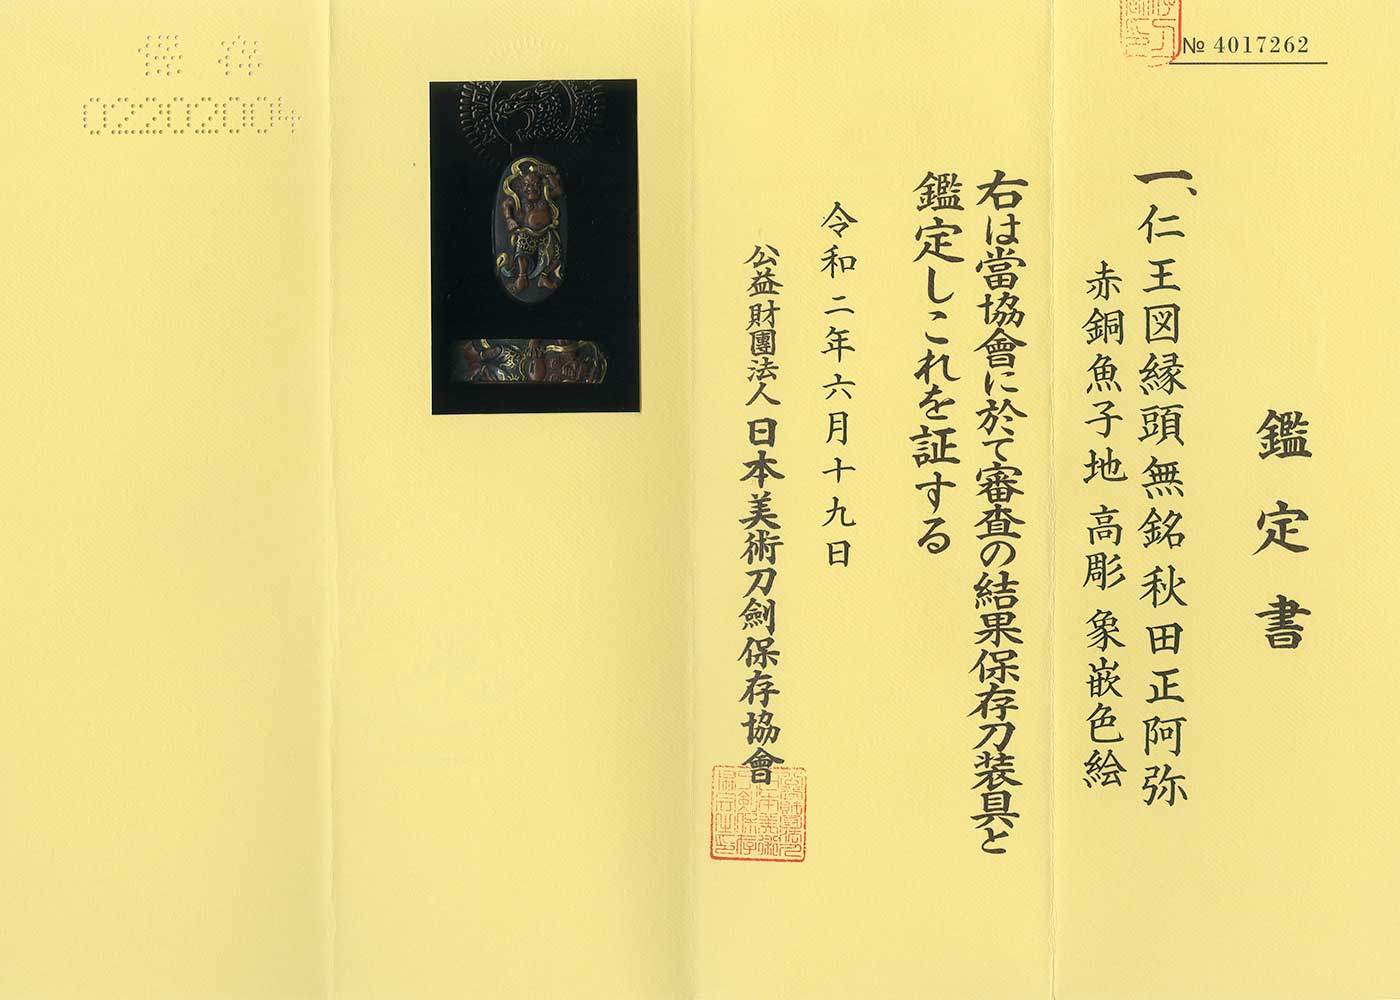 № 4017262
鑑定書
一、仁王図縁頭 無銘 秋田正阿弥
赤銅魚子地 高彫 象嵌色絵
右は當協會に於て審査の結果保存刀装具と
鑑定しこれを証する
令和二年六月十九日
公益財團法人 日本美術刀劍保存協會
保存
02202004